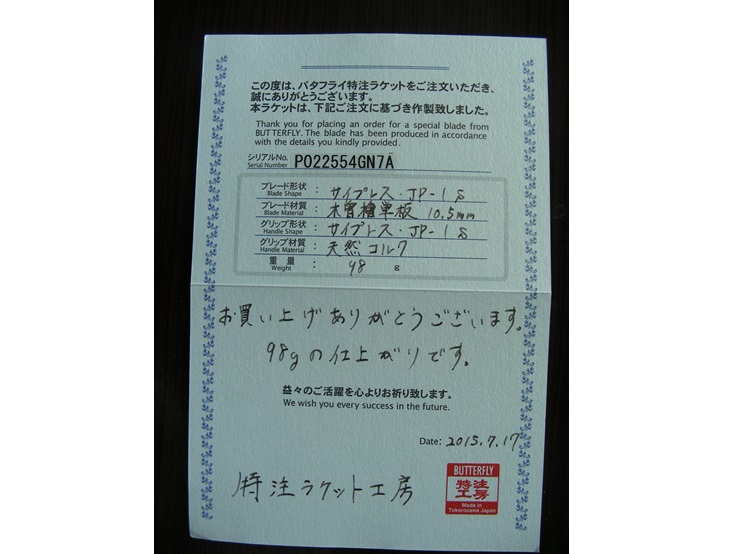 この度は、バタフライ特注ラケットをご注文いただき、
誠にありがとうございます。
本ラケットは、下記ご注文に基づき作製致しました。
Thank you for placing an order for a special blade from
BUTTERFLY. The blade has been produced in accordance
with the details you kindly provided.
シリアルNo. PO22554GN7A
Serial Number
ブレード形状 : サイプレス・JP-1 S
Blade Shape
ブレード材質 : 木曽檜単板 10.5mm
Blade Material
グリップ形状 : サイプレス・JP-1 S
Handle Shape
グリップ材質 : 天然コルク
Handle Material
重量 : 98 g
Weight
お買い上げありがとうございます。
98gの仕上がりです。
益々のご活躍を心よりお祈り致します。
We wish you every success in the future.
Date: 2015.7.17
特注ラケット工房
BUTTERFLY
特注
工房
Made in
Tokorozawa Japan